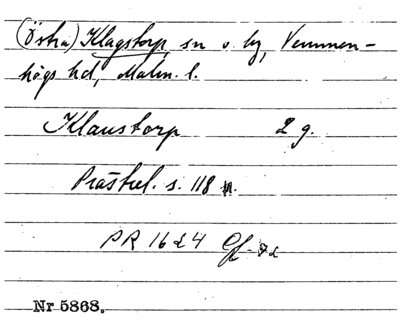 (Östra) Klagstorp sn o. by, Vemmen-
högs hd, Malm. l.
Klaustorp 2 g.
Prästrel. s. 118
PR 1624
Nr 5868.